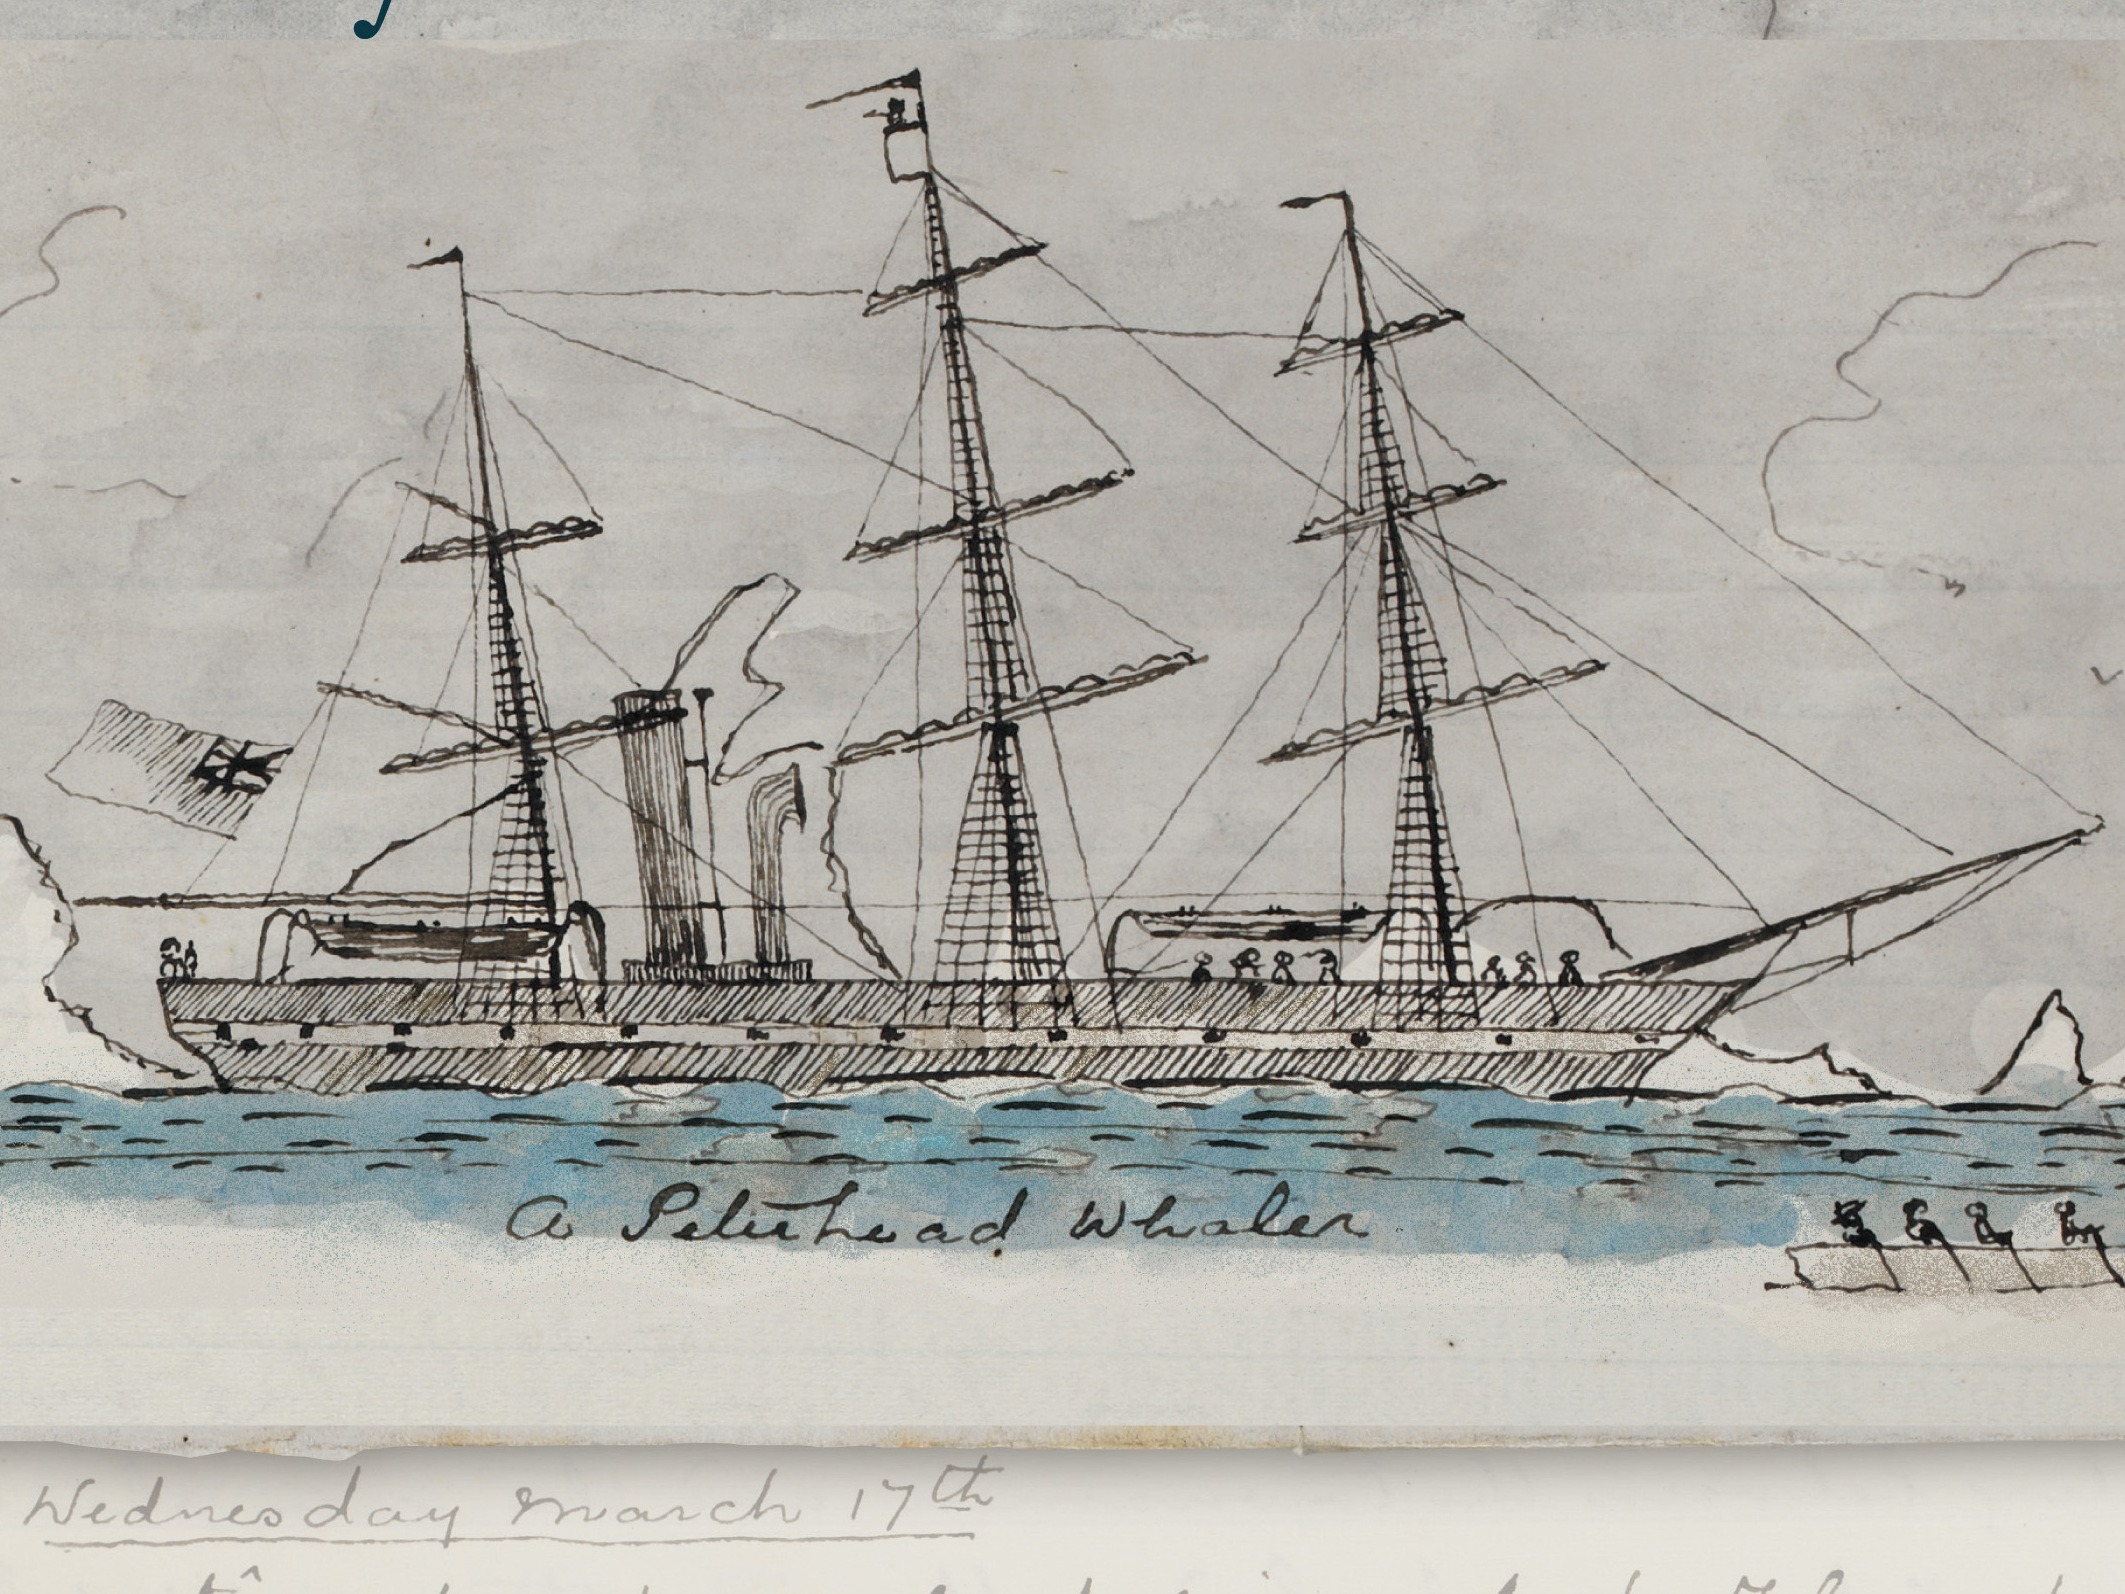 A Peterhead Whaler
Wednesday March 17th